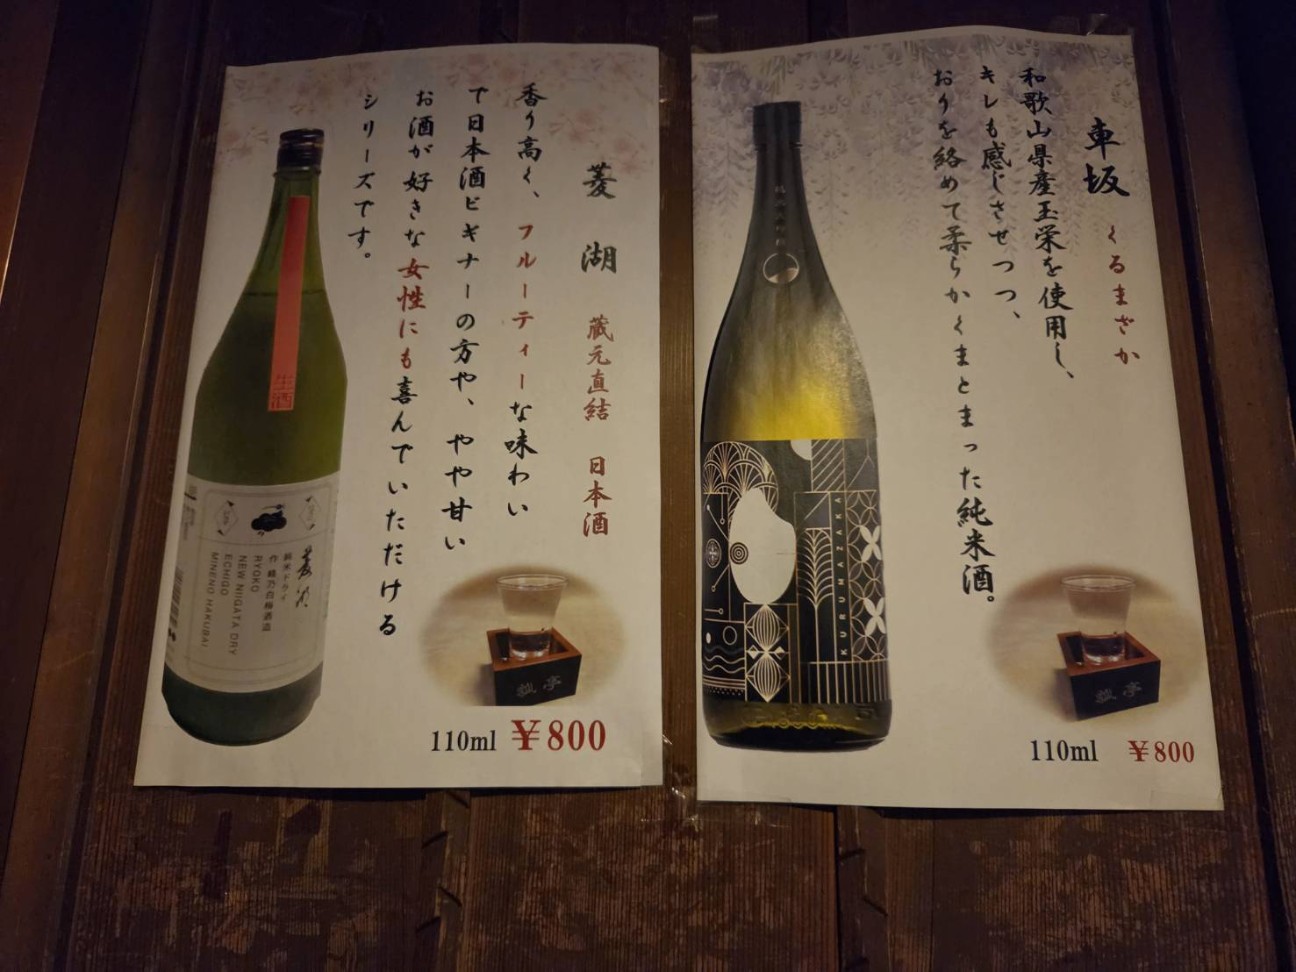 菱湖 蔵元直結 日本酒
香り高く、フルーティーな味わい
で日本酒ビギナーの方や、やや甘い
お酒が好きな女性にも喜んでいただける
シリーズです。
生酒
菱湖
純米ドライ
作 峰乃白梅酒造
RYOKO
NEW NIIGATA DRY
ECHIGO
MINENO HAKUBAI
110ml ¥800
車坂 くるまざか
和歌山県産玉栄を使用し、
キレも感じさせつつ、
おりを絡めて柔らかくまとまった純米酒。
KURUMAZAKA
110ml ¥800